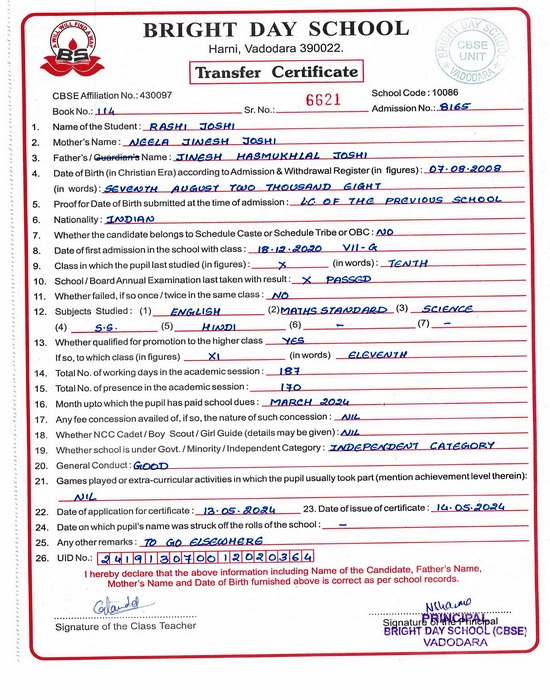 A WILL WILL FIND A WAY
BS
BRIGHT DAY SCHOOL
Harni, Vadodara 390022.
BRIGHT DAY SCHOOL
CBSE
UNIT
VADODARA
Transfer Certificate
CBSE Affiliation No.: 430097
School Code : 10086
Book No.: 114 Sr. No.: 6621 Admission No.: 8165
1. Name of the Student : RASHI JOSHI
2. Mother's Name : NEELA JINESH JOSHI
3. Father's / Guardian's Name : JINESH HASMUKHLAL JOSHI
4. Date of Birth (in Christian Era) according to Admission & Withdrawal Register (in figures) : 07-08-2008
(in words) : SEVENTH AUGUST TWO THOUSAND EIGHT
5. Proof for Date of Birth submitted at the time of admission : LC OF THE PREVIOUS SCHOOL
6. Nationality : INDIAN
7. Whether the candidate belongs to Schedule Caste or Schedule Tribe or OBC : NO
8. Date of first admission in the school with class : 18-12-2020 VII-G
9. Class in which the pupil last studied (in figures) : X (in words) : TENTH
10. School / Board Annual Examination last taken with result : X PASSED
11. Whether failed, if so once / twice in the same class : NO
12. Subjects Studied : (1) ENGLISH (2) MATHS STANDARD (3) SCIENCE
(4) S.S. (5) HINDI (6) – (7) –
13. Whether qualified for promotion to the higher class YES
If so, to which class (in figures) XI (in words) ELEVENTH
14. Total No. of working days in the academic session : 187
15. Total No. of presence in the academic session : 170
16. Month upto which the pupil has paid school dues : MARCH 2024
17. Any fee concession availed of, if so, the nature of such concession : NIL
18. Whether NCC Cadet / Boy Scout / Girl Guide (details may be given) : NIL
19. Whether school is under Govt. / Minority / Independent Category : INDEPENDENT CATEGORY
20. General Conduct : GOOD
21. Games played or extra-curricular activities in which the pupil usually took part (mention achievement level therein):
NIL
22. Date of application for certificate : 13-05-2024 23. Date of issue of certificate : 14-05-2024
24. Date on which pupil's name was struck off the rolls of the school : –
25. Any other remarks : TO GO ELSEWHERE
26. UID No.: 241913070012020364
I hereby declare that the above information including Name of the Candidate, Father's Name,
Mother's Name and Date of Birth furnished above is correct as per school records.
Signature of the Class Teacher
Signature of the Principal
PRINCIPAL
BRIGHT DAY SCHOOL (CBSE)
VADODARA